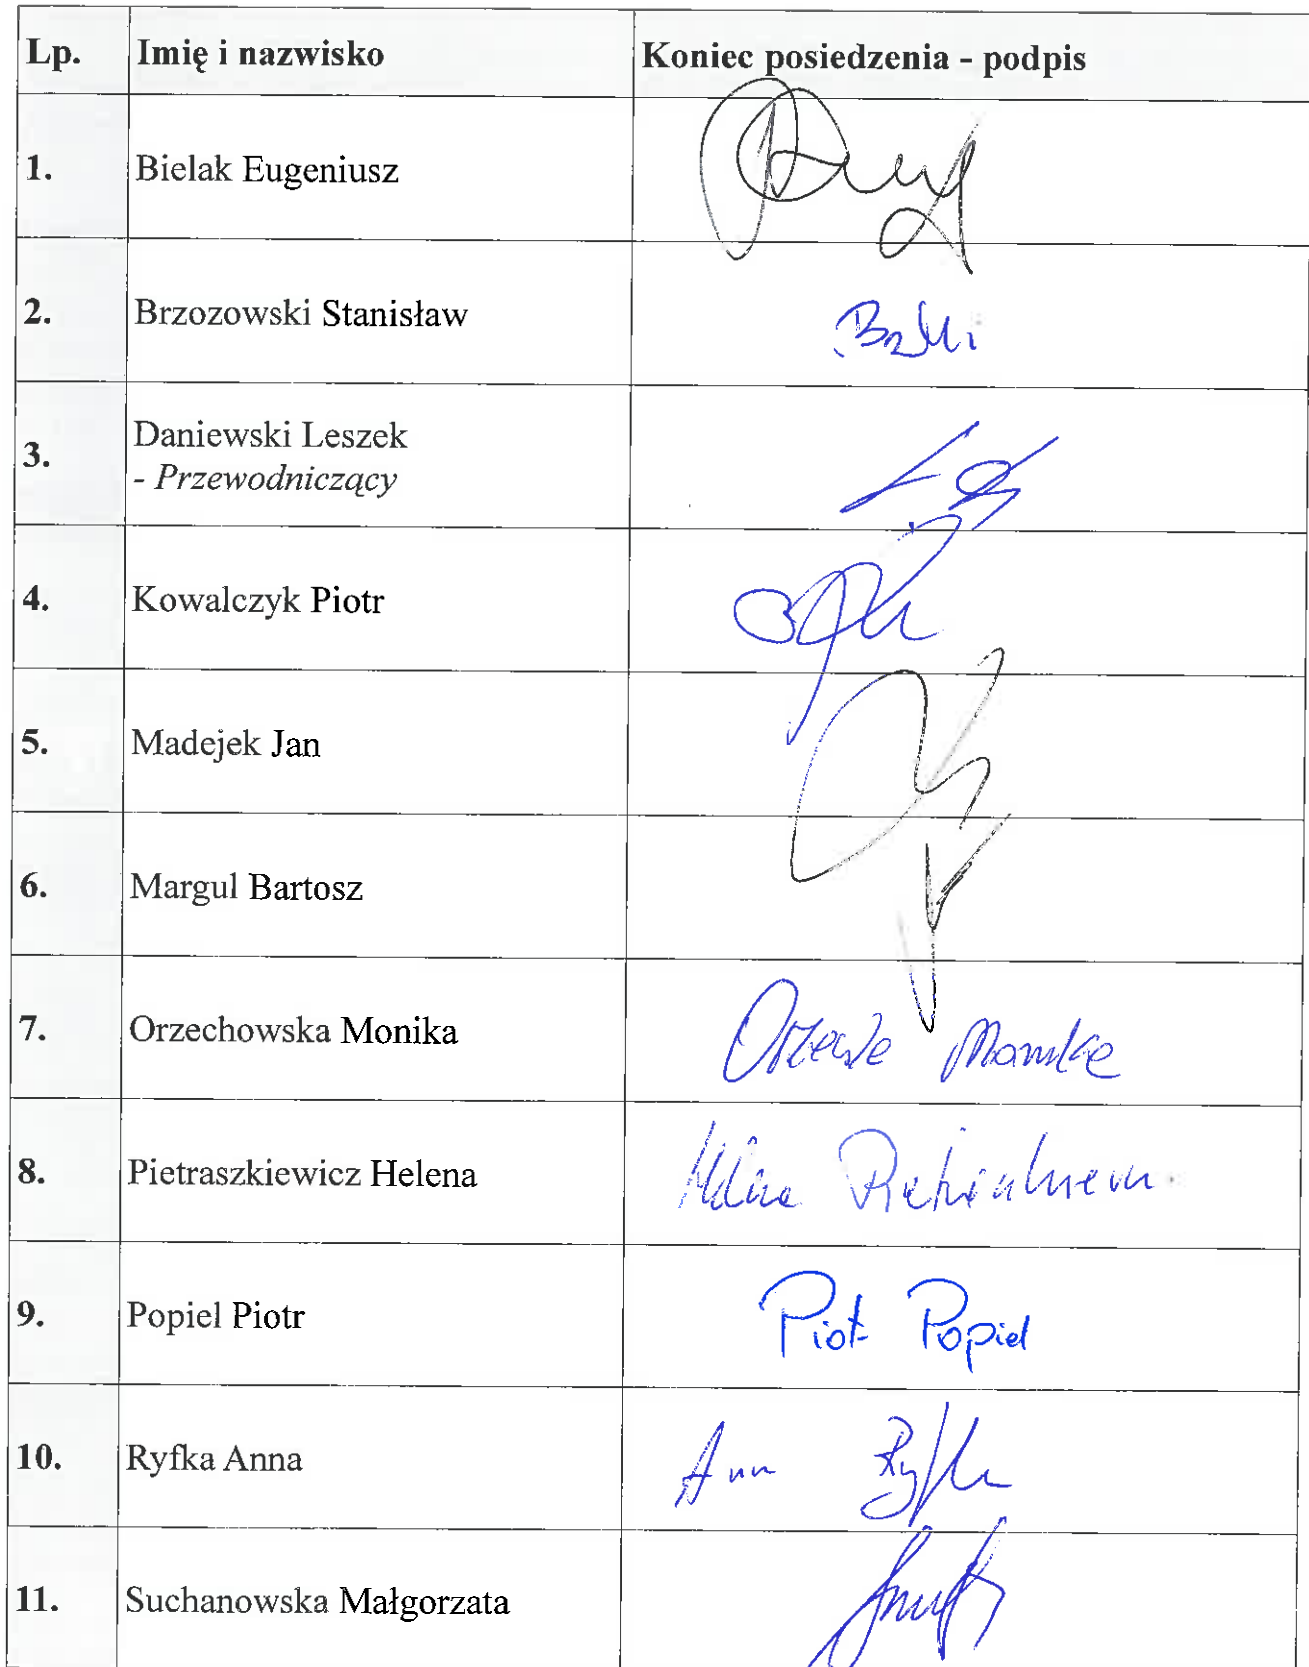 Lp. Imię i nazwisko Koniec posiedzenia - podpis
1. Bielak Eugeniusz
2. Brzozowski Stanisław
3. Daniewski Leszek
- Przewodniczący
4. Kowalczyk Piotr
5. Madejek Jan
6. Margul Bartosz
7. Orzechowska Monika
8. Pietraszkiewicz Helena
9. Popiel Piotr Piotr Popiel
10. Ryfka Anna
11. Suchanowska Małgorzata